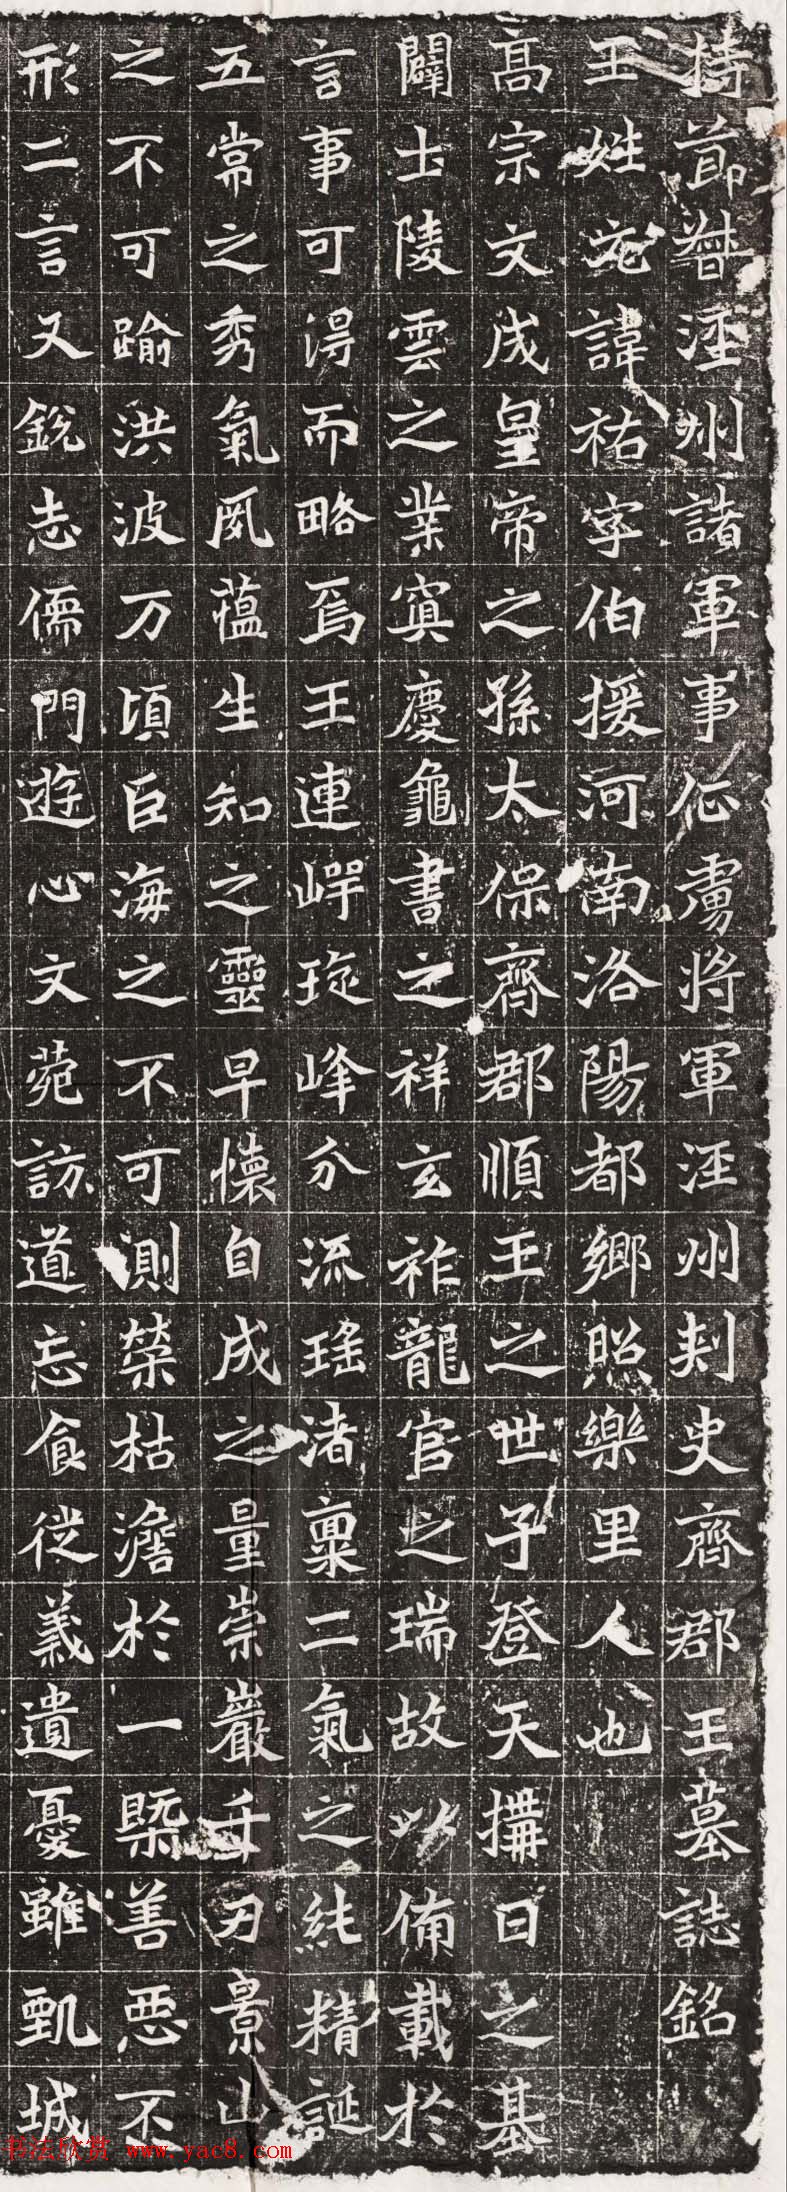 持節督涇州諸軍事征虜將軍涇州刺史齊郡王墓誌銘
王姓元諱祐字伯援河南洛陽都鄉照樂里人也
高宗文成皇帝之孫太保齊郡順王之世子登天構日之基
闢土陵雲之業寘慶龜書之祥玄祚龍官之瑞故以備載於
言事可得而略焉王連崿琁峰分流瑤渚稟二氣之純精誕
五常之秀氣夙蘊生知之靈早懷自成之量崇巖千刃景山
之不可踰洪波万頃巨海之不可測榮枯澹於一槩善惡不
形二言又銳志儒門遊心文菀訪道忘食從義遺憂雖甄城
书法欣赏 www.yac8.com